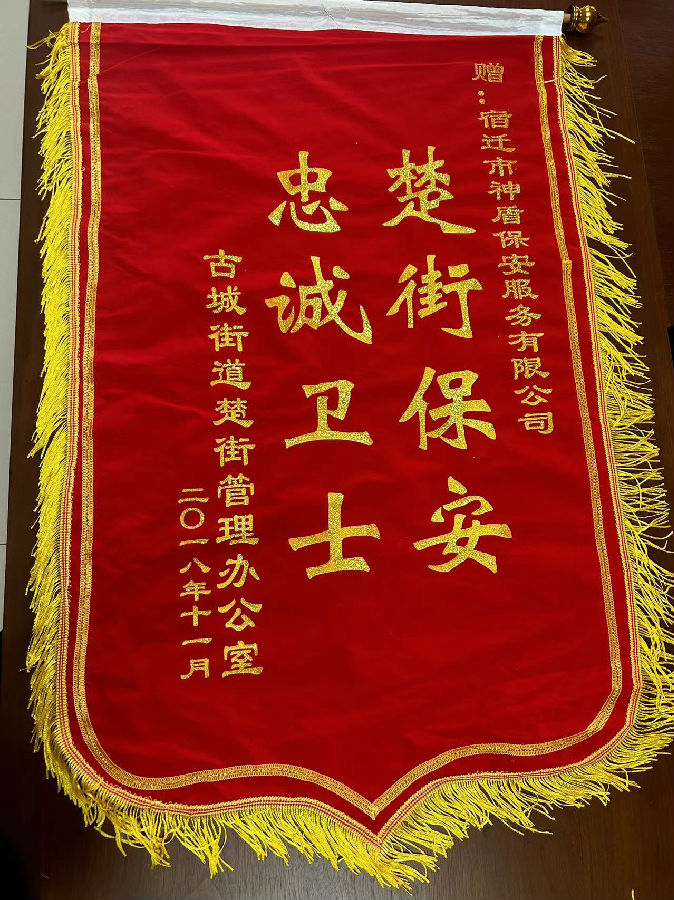 赠：宿迁市神盾保安服务有限公司
楚街保安
忠诚卫士
古城街道楚街管理办公室
二〇一八年十一月